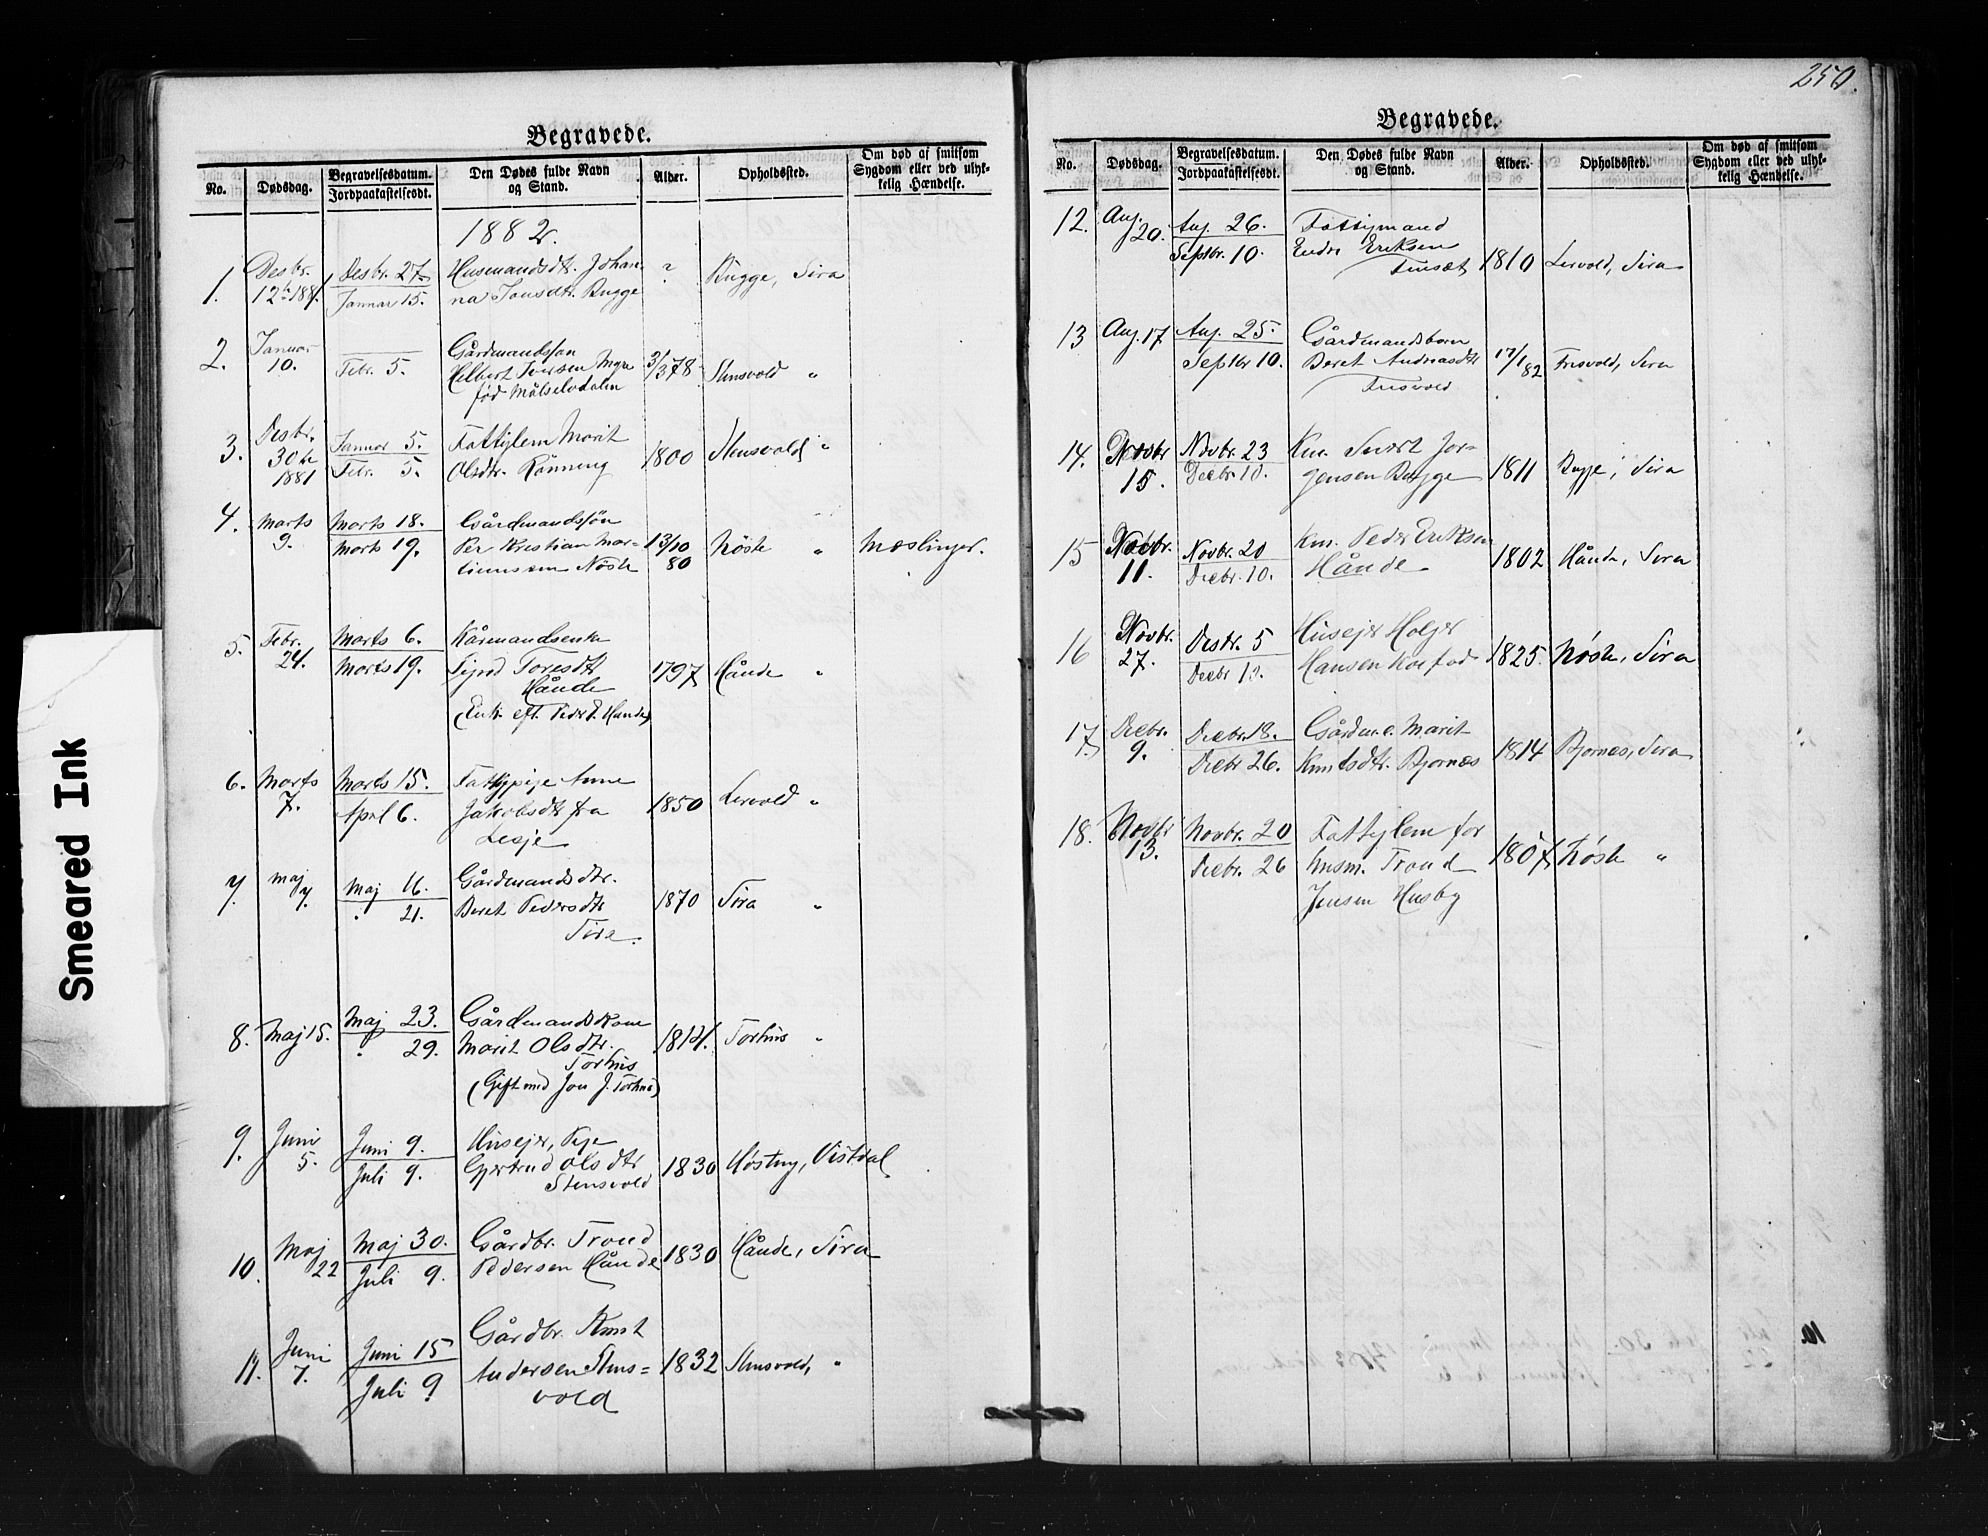 250.
Begravede.
No. Dødsdag. Begravelsesdatum. Jordpaakastelsesdt. Den Dødes fulde Navn og Stand. Alder. Opholdssted. Om død af smitsom Sygdom eller ved ulyk-kelig Hændelse.
1882.
1. Desbr. 12te 1881. Desbr. 27 Januar 15. Husmandsdtr. Johan-
na Jonsdtr. Bugge " Bugge, Sira
2. Januar 10. Febr. 5. Gårdmandssøn
Helbert Tønsen Myr 3/3 78 Stensvold "
fød Målselvdalen
3. Desbr. 30te 1881 Januar 5. Febr. 5. Fattiglem Marit
Olsdtr. Rønning 1800 Stensvold "
4. Marts 9. Marts 18. Marts 19. Gårdmandssøn
Per Kristian Mar= 13/10 80 Nøste " Mæslinger.
tinussen Nøste
5. Febr. 24. Marts 6. Marts 19. Kårmandsenke
Toresdtr 1797 Hånde "
Hånde
(Enk. eft. Peder E. Hånde)
6. Marts 7. Marts 15. April 6. Fattigpige Anne
Jakobsdtr fra 1850 Lervold "
Lesje
7. Maj 7. Maj 16. " 21. Gårdmandsdtr.
Beret Pedersdtr 1870 Sira "
Sira.
8. Maj 15. Maj 23. " 29. Gårdmandskone
Marit Olsdtr. 1814. Torhus "
Torhus
(Gift med Jon J. Torhus)
9. Juni 5. Juni 9. Juli 9. Husejer, Pige
Gjertrud Olsdtr 1830 Vistdal
Stensvold
10. Maj 22 Maj 30. Juli 9. Gårdbr. Trond
Pedersen Hånde 1830 Hånde, Sira
11. Juni 7. Juni 15 Juli 9 Gårdbr. Knut
Andersen Stens= 1832 Stensvold, "
vold
Begravede.
No. Dødsdag. Begravelsesdatum. Jordpaakastelsesdt. Den Dødes fulde Navn og Stand. Alder. Opholdssted. Om død af smitsom Sygdom eller ved ulyk-kelig Hændelse.
12. Aug. 20. Aug. 26. Septbr. 10. Fattigmand
Endre Eriksen
Finsæt 1810 Lervold, Sira
13 Aug. 17 Aug. 25. Septbr 10. Gårdmandsbarn
Beret Andreasdtr 17/1 82 Frisvold, Sira
Frisvold
14. Novbr 15. Novbr. 23 Decbr. 10. Km. Sivert Jør-
gensen Bugge 1811 Bugge, Sira
15 Novbr. 11. Novbr. 20 Decbr. 10. Km. Peder Eriksen
Hånde 1802 Hånde, Sira
16 Novbr. 27. Desbr. 5 Decbr 10. Husejer Holger
Hansen Koefod 1825. Nøste, Sira
17. Decbr. 9. Decbr. 18. Decbr 26. Gårdm.e. Marit
Knutsdtr. Bjørnes 1814 Bjørnes, Sira
18. Novbr 13. Novbr. 20 Decbr. 26 Fattiglem før
husm. Trond 1807 Nøste "
Jensen Husby
10.
Smeared Ink